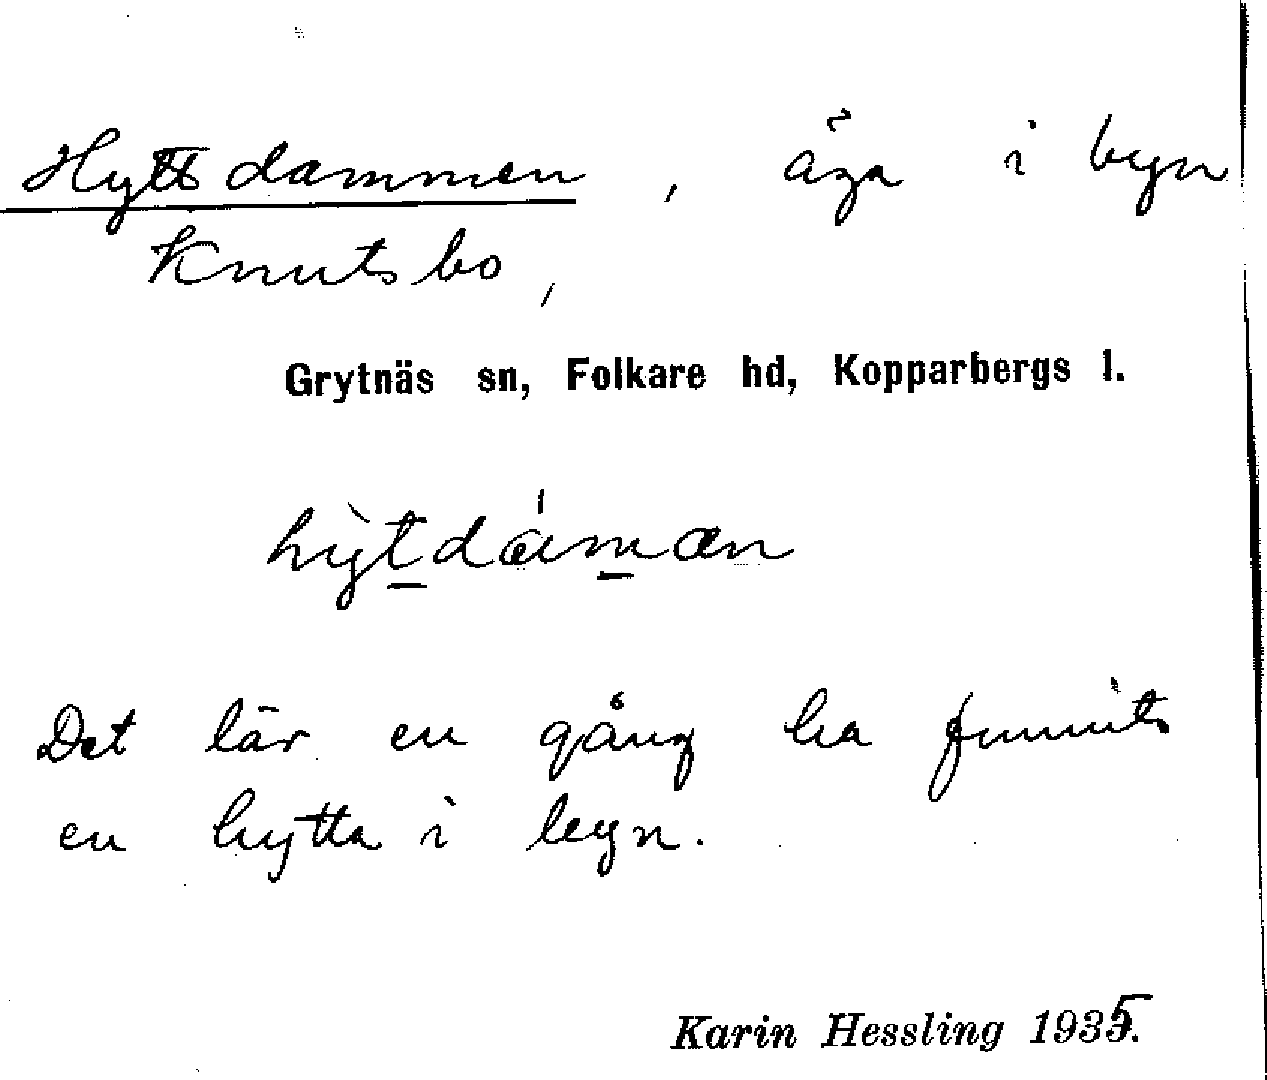 Hyttdammen, åga i byn
Knutsbo,
Grytnäs sn, Folkare hd, Kopparbergs l.
hỳtdámæn
Det lär en gång ha funnits
en hytta i byn.
Karin Hessling 1935.